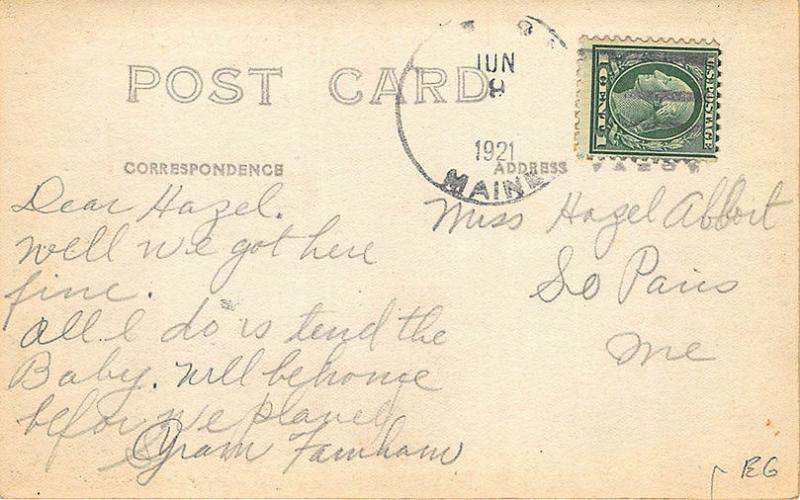 POST CARD
JUN
9
1921
MAINE
1 CENT 1
U.S. POSTAGE
CORRESPONDENCE
ADDRESS
Dear Hazel.
Well we got here
fine.
all I do is tend the
Baby. Will be home
befor we planed
Gram Farnham
Miss Hazel Abbott
So Paris
Me
EG